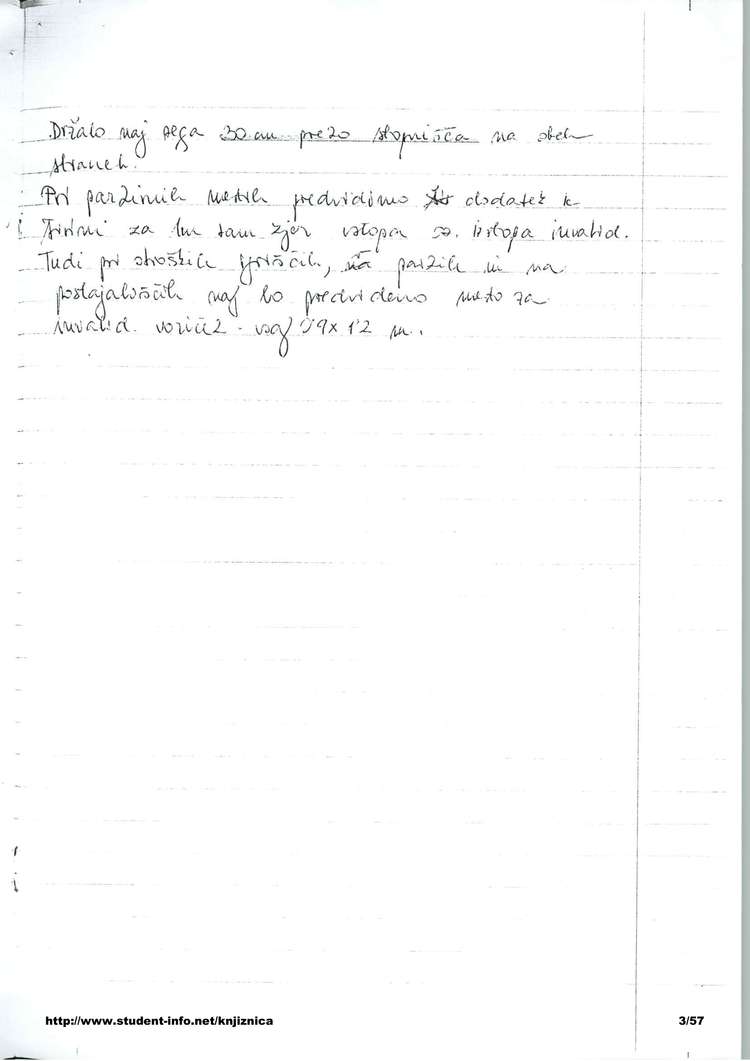 Držalo naj sega 30 cm prezo stopnišča na obeh
straneh.
Pri parzirnih mestih predvidimo dodatek k
širini za 1m tam zjer vstopa oz. izstopa invalid.
Tudi pri otroških igriščih, na parzih in na
postajališčih naj bo predvideno mesto za
invalid. voziče2 - vsaj 0'9 x 1'2 m.
http://www.student-info.net/knjiznica
3/57